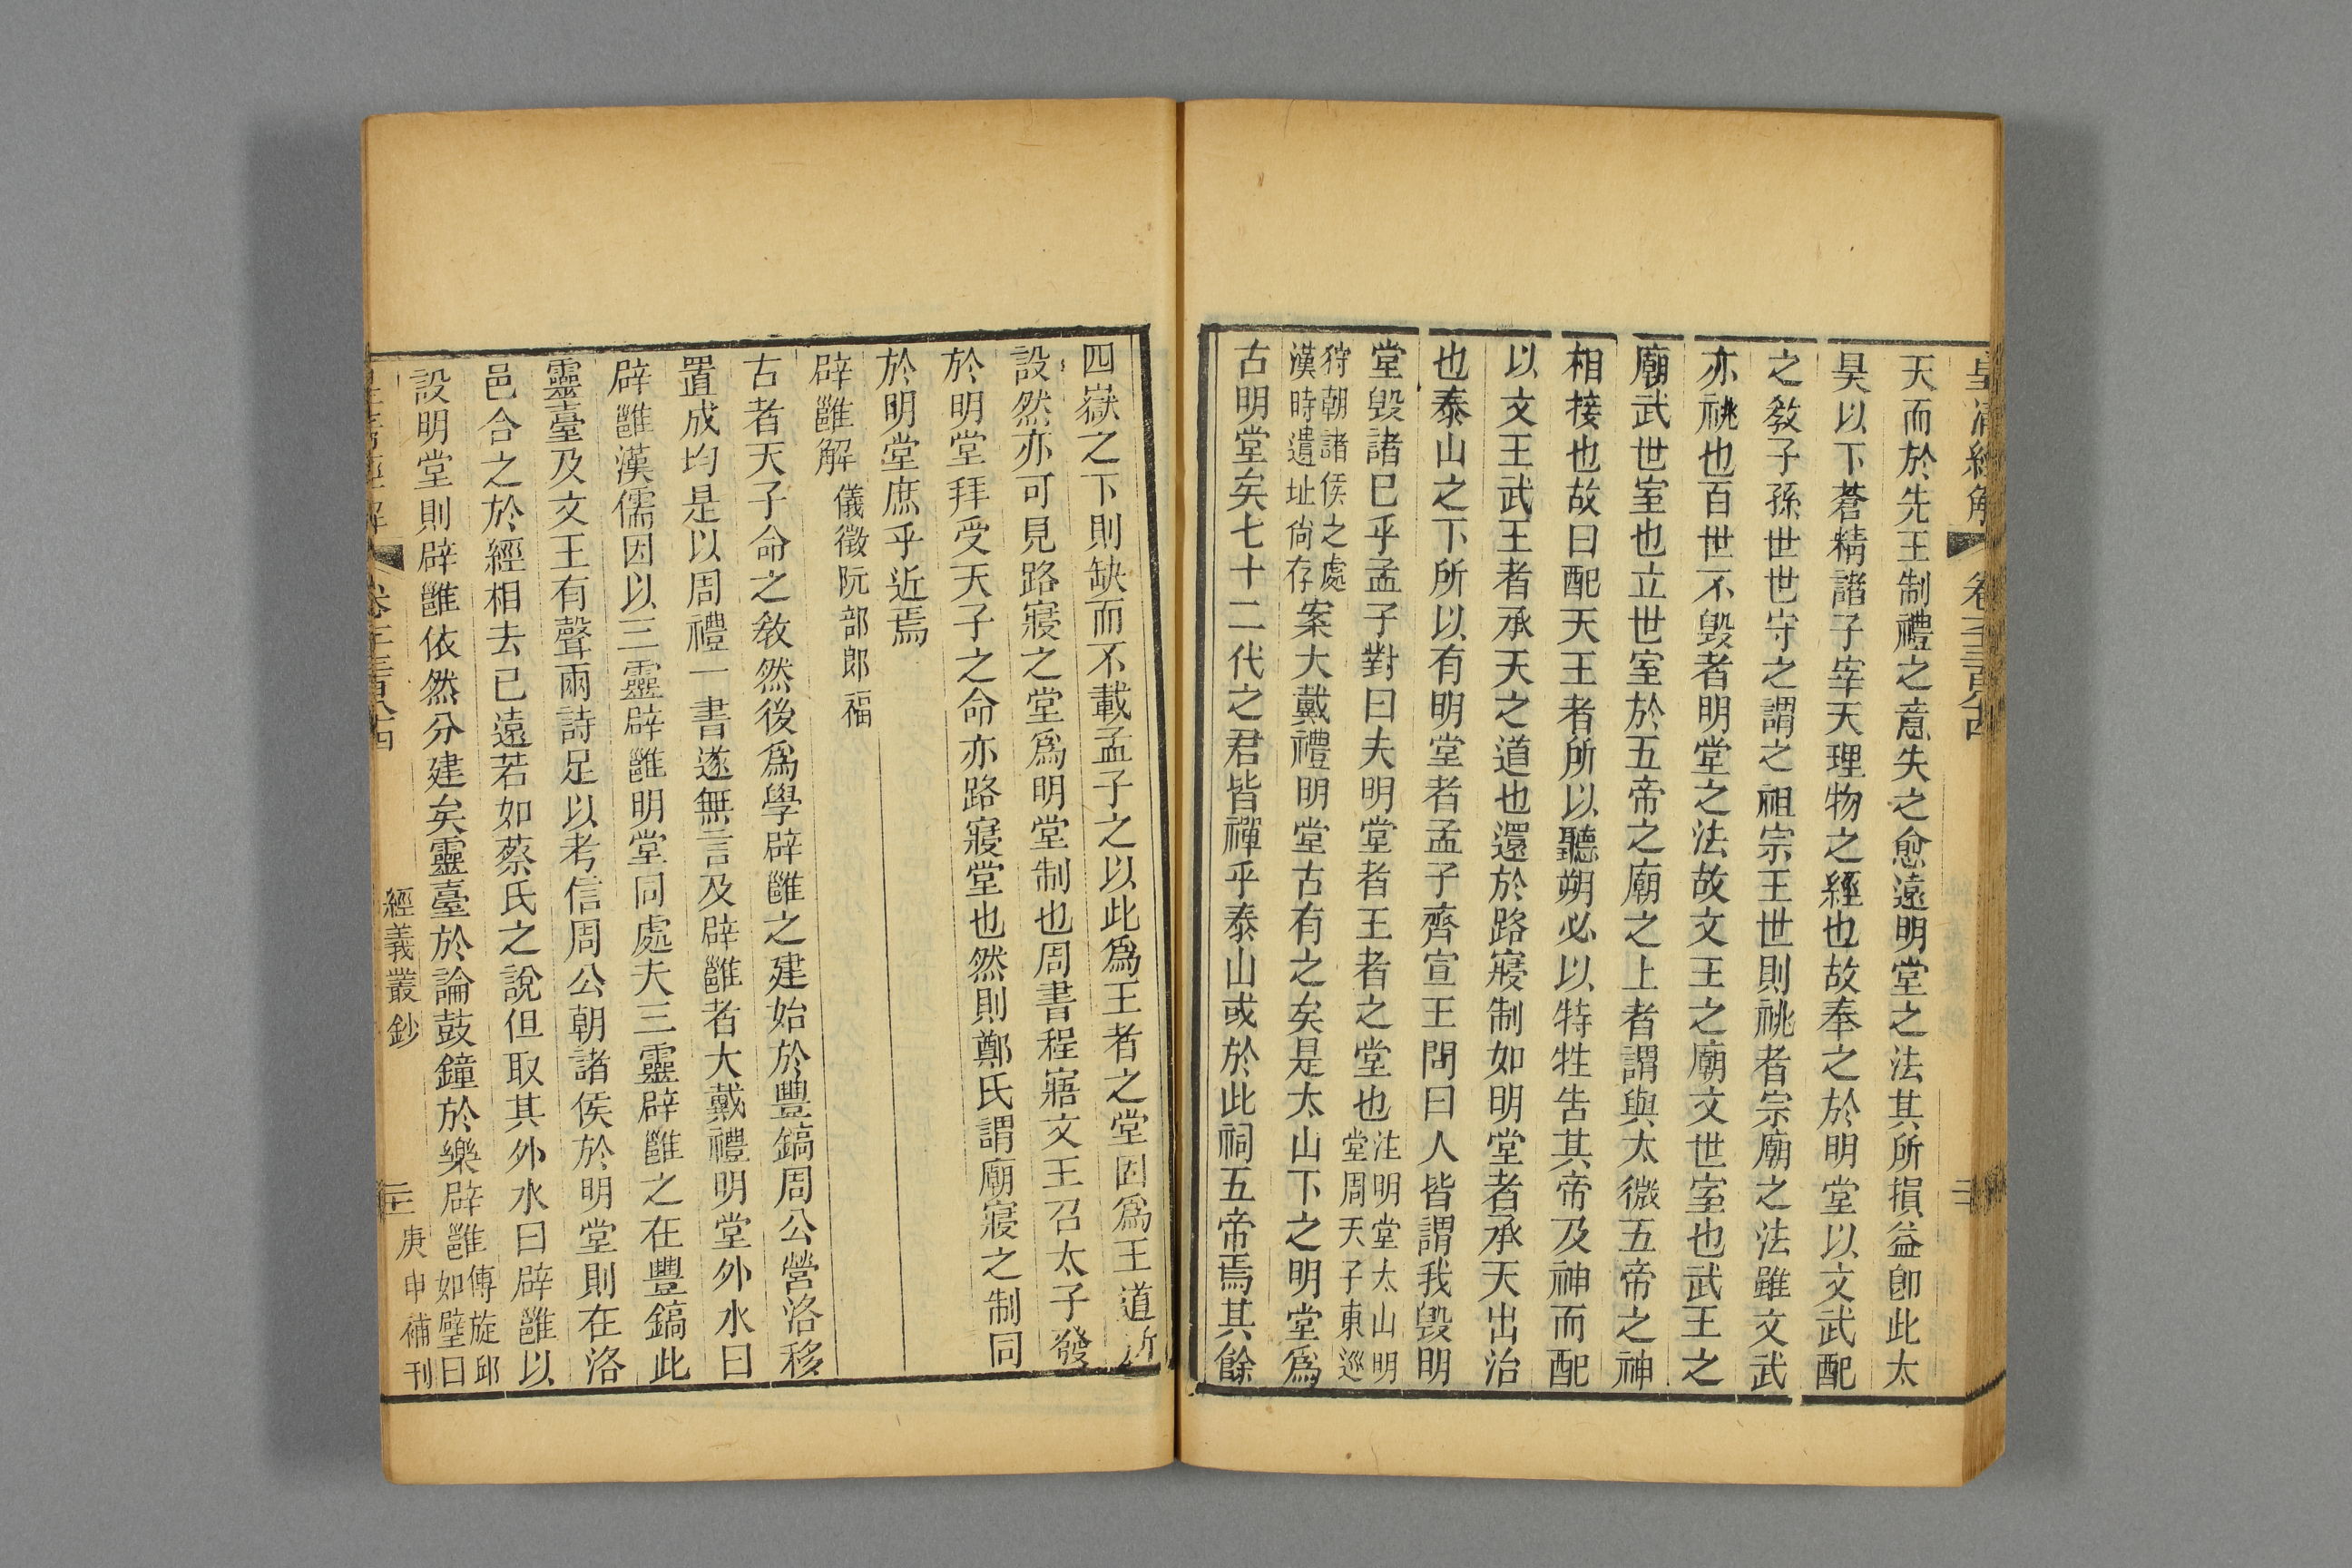 皇清經解 卷千三百八十四
天而於先王制禮之意失之愈遠明堂之法其所損益卽此太
昊以下蒼精諸子宰天理物之經也故奉之於明堂以文武配
之敎子孫世世守之謂之祖宗王世則祧者宗廟之法雖文武
亦祧也百世不毀者明堂之法故文王之廟文世室也武王之
廟武世室也立世室於五帝之廟之上者謂與太微五帝之神
相接也故曰配天王者所以聽朔必以特牲告其帝及神而配
以文王武王者承天之道也還於路寢制如明堂者承天出治
也泰山之下所以有明堂者孟子齊宣王問曰人皆謂我毀明
堂毀諸已乎孟子對曰夫明堂者王者之堂也注明堂太山明堂周天子東巡
狩朝諸侯之處漢時遺址尙存案大戴禮明堂古有之矣是太山下之明堂爲
古明堂矣七十二代之君皆禪乎泰山或於此祠五帝焉其餘
四嶽之下則缺而不載孟子之以此爲王者之堂因爲王道所
設然亦可見路寢之堂爲明堂制也周書程寤文王召太子發
於明堂拜受天子之命亦路寢堂也然則鄭氏謂廟寢之制同
於明堂庶乎近焉
辟雝解 儀徵阮部郎福
古者天子命之敎然後爲學辟雝之建始於豐鎬周公營洛移
置成均是以周禮一書遂無言及辟雝者大戴禮明堂外水曰
辟雝漢儒因以三靈辟雝明堂同處夫三靈辟雝之在豐鎬此
靈臺及文王有聲兩詩足以考信周公朝諸侯於明堂則在洛
邑合之於經相去已遠若如蔡氏之說但取其外水曰辟雝以
設明堂則辟雝依然分建矣靈臺於論鼓鐘於樂辟雝傳旋邱如璧曰
經義叢鈔
庚申補刊